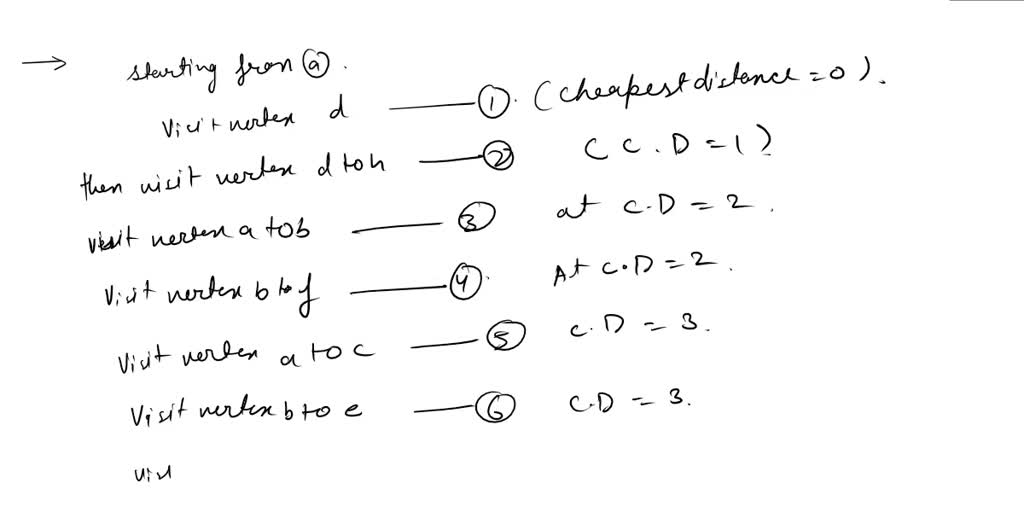 → starting from ⓐ.
Visit vertex d —— ①. (cheapest distance = 0).
then visit vertex d to h —— ② (C.D = 1)
visit vertex a to b —— ③ at C.D = 2.
Visit vertex b to f —— ④. At C.D = 2.
Visit vertex a to c —— ⑤ C.D = 3.
Visit vertex b to e —— ⑥ C.D = 3.
vis